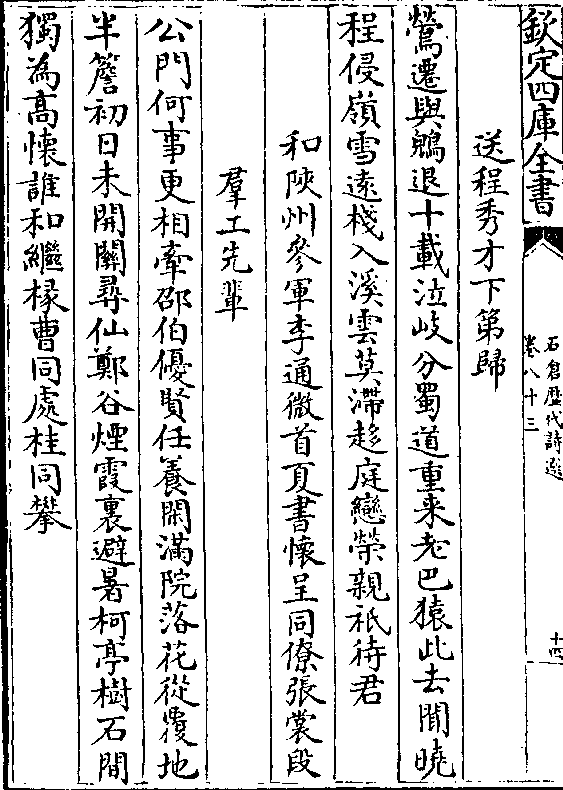 欽定四庫全書
石倉歴代詩選
卷八十三
十四
送程秀才下第歸
鶯遷與鷁退十載泣岐分蜀道重來老巴猿此去聞曉
程侵嶺雪遠棧入溪雲莫滯趍庭戀榮親衹待君
和陝州參軍李通微首夏書懷呈同僚張裳段
羣工先輩
公門何事更相牽邵伯優賢任養閒滿院落花從覆地
半簷初日未開關尋仙鄭谷煙霞裏避暑柯亭樹石間
獨為高懷誰和繼椽曹同處桂同攀